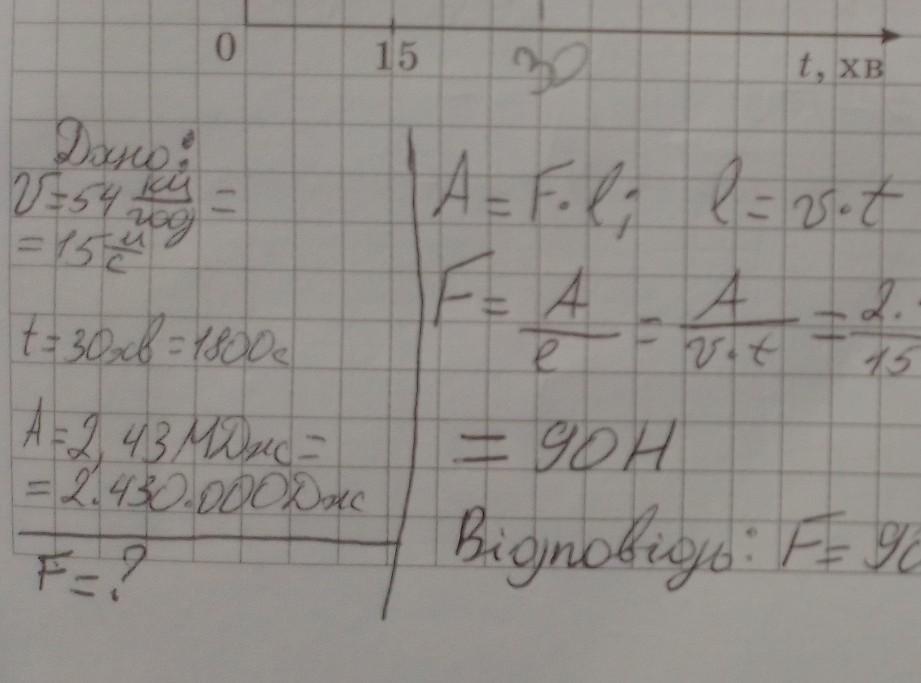 0 15 30 t, хв
Дано:
V=54 км/год =
= 15 м/с
t=30хв=1800с
A=2,43МДж=
=2.430.000Дж
F=?
A=F·l; l=v·t
F= A/l = A/v·t = 2./15
= 90Н
Відповідь: F= 90